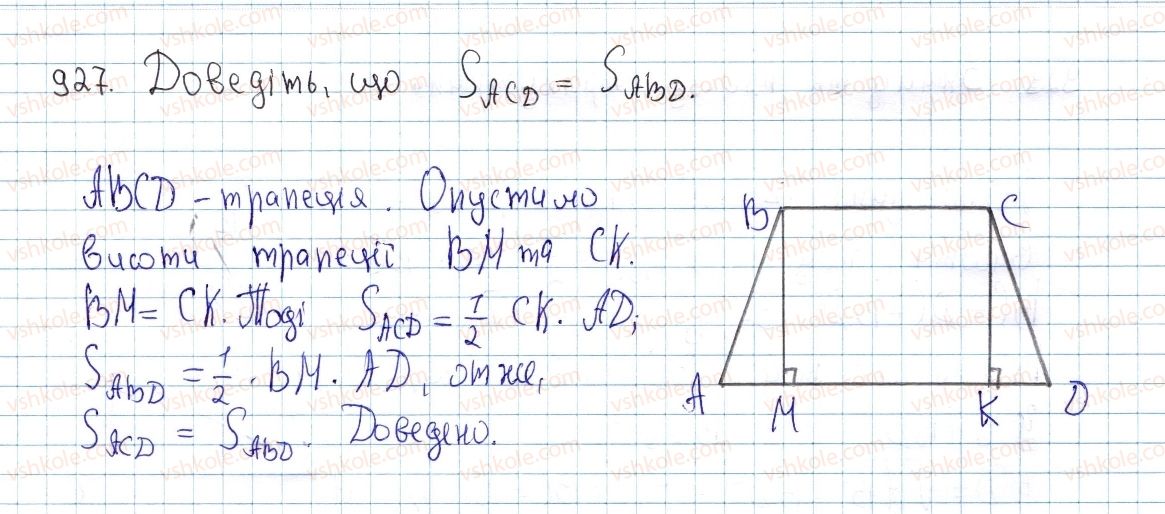 927. Доведіть, що S_ACD = S_ABD.
ABCD – трапеція. Опустимо
висоти трапеції BM та CK.
BM = CK. Тоді S_ACD = 1/2 CK · AD;
S_ABD = 1/2 · BM · AD, отже,
S_ACD = S_ABD. Доведено.
B C
A M K D
vshkole.com